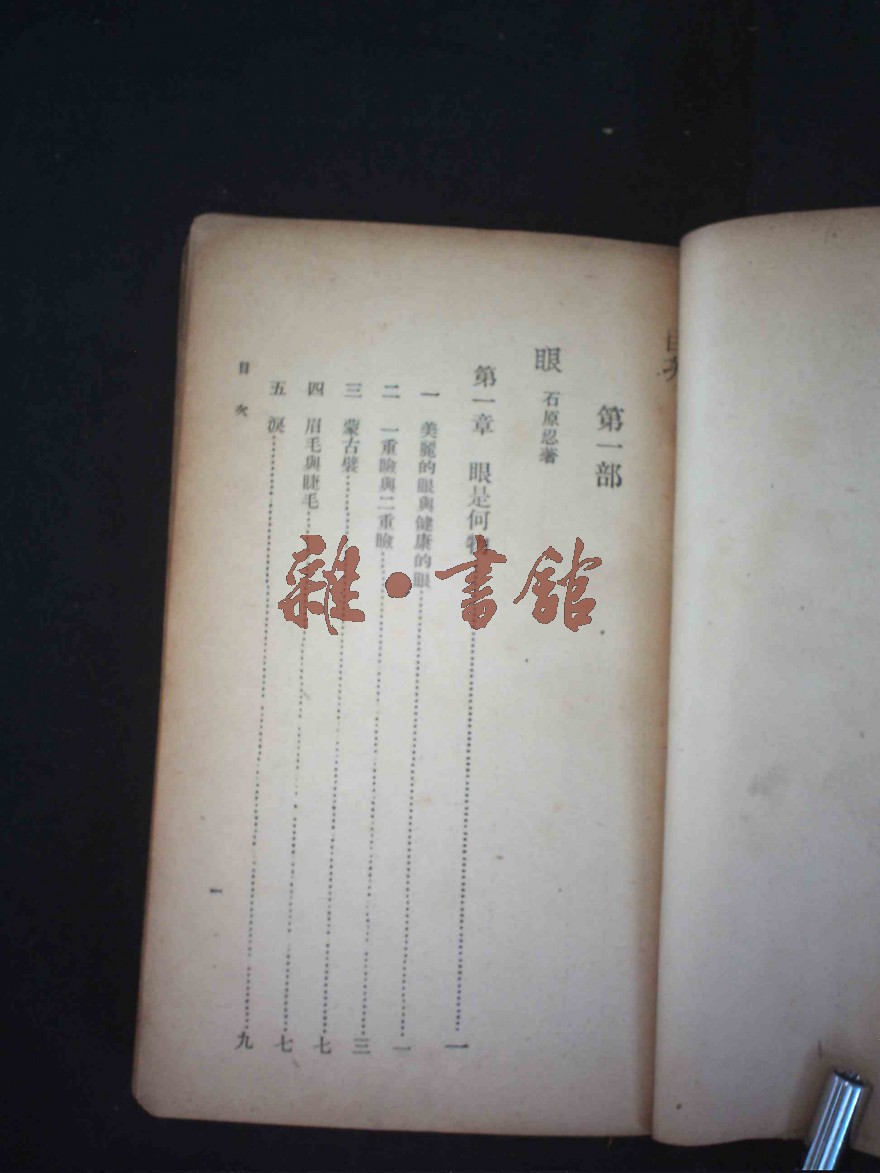 目次
第一部
眼　石原忍著
第一章　眼是何物……一
一　美麗的眼與健康的眼……一
二　一重瞼與二重瞼……三
三　蒙古襞……七
四　眉毛與睫毛……七
五　淚……九
目次
一
雜·書館